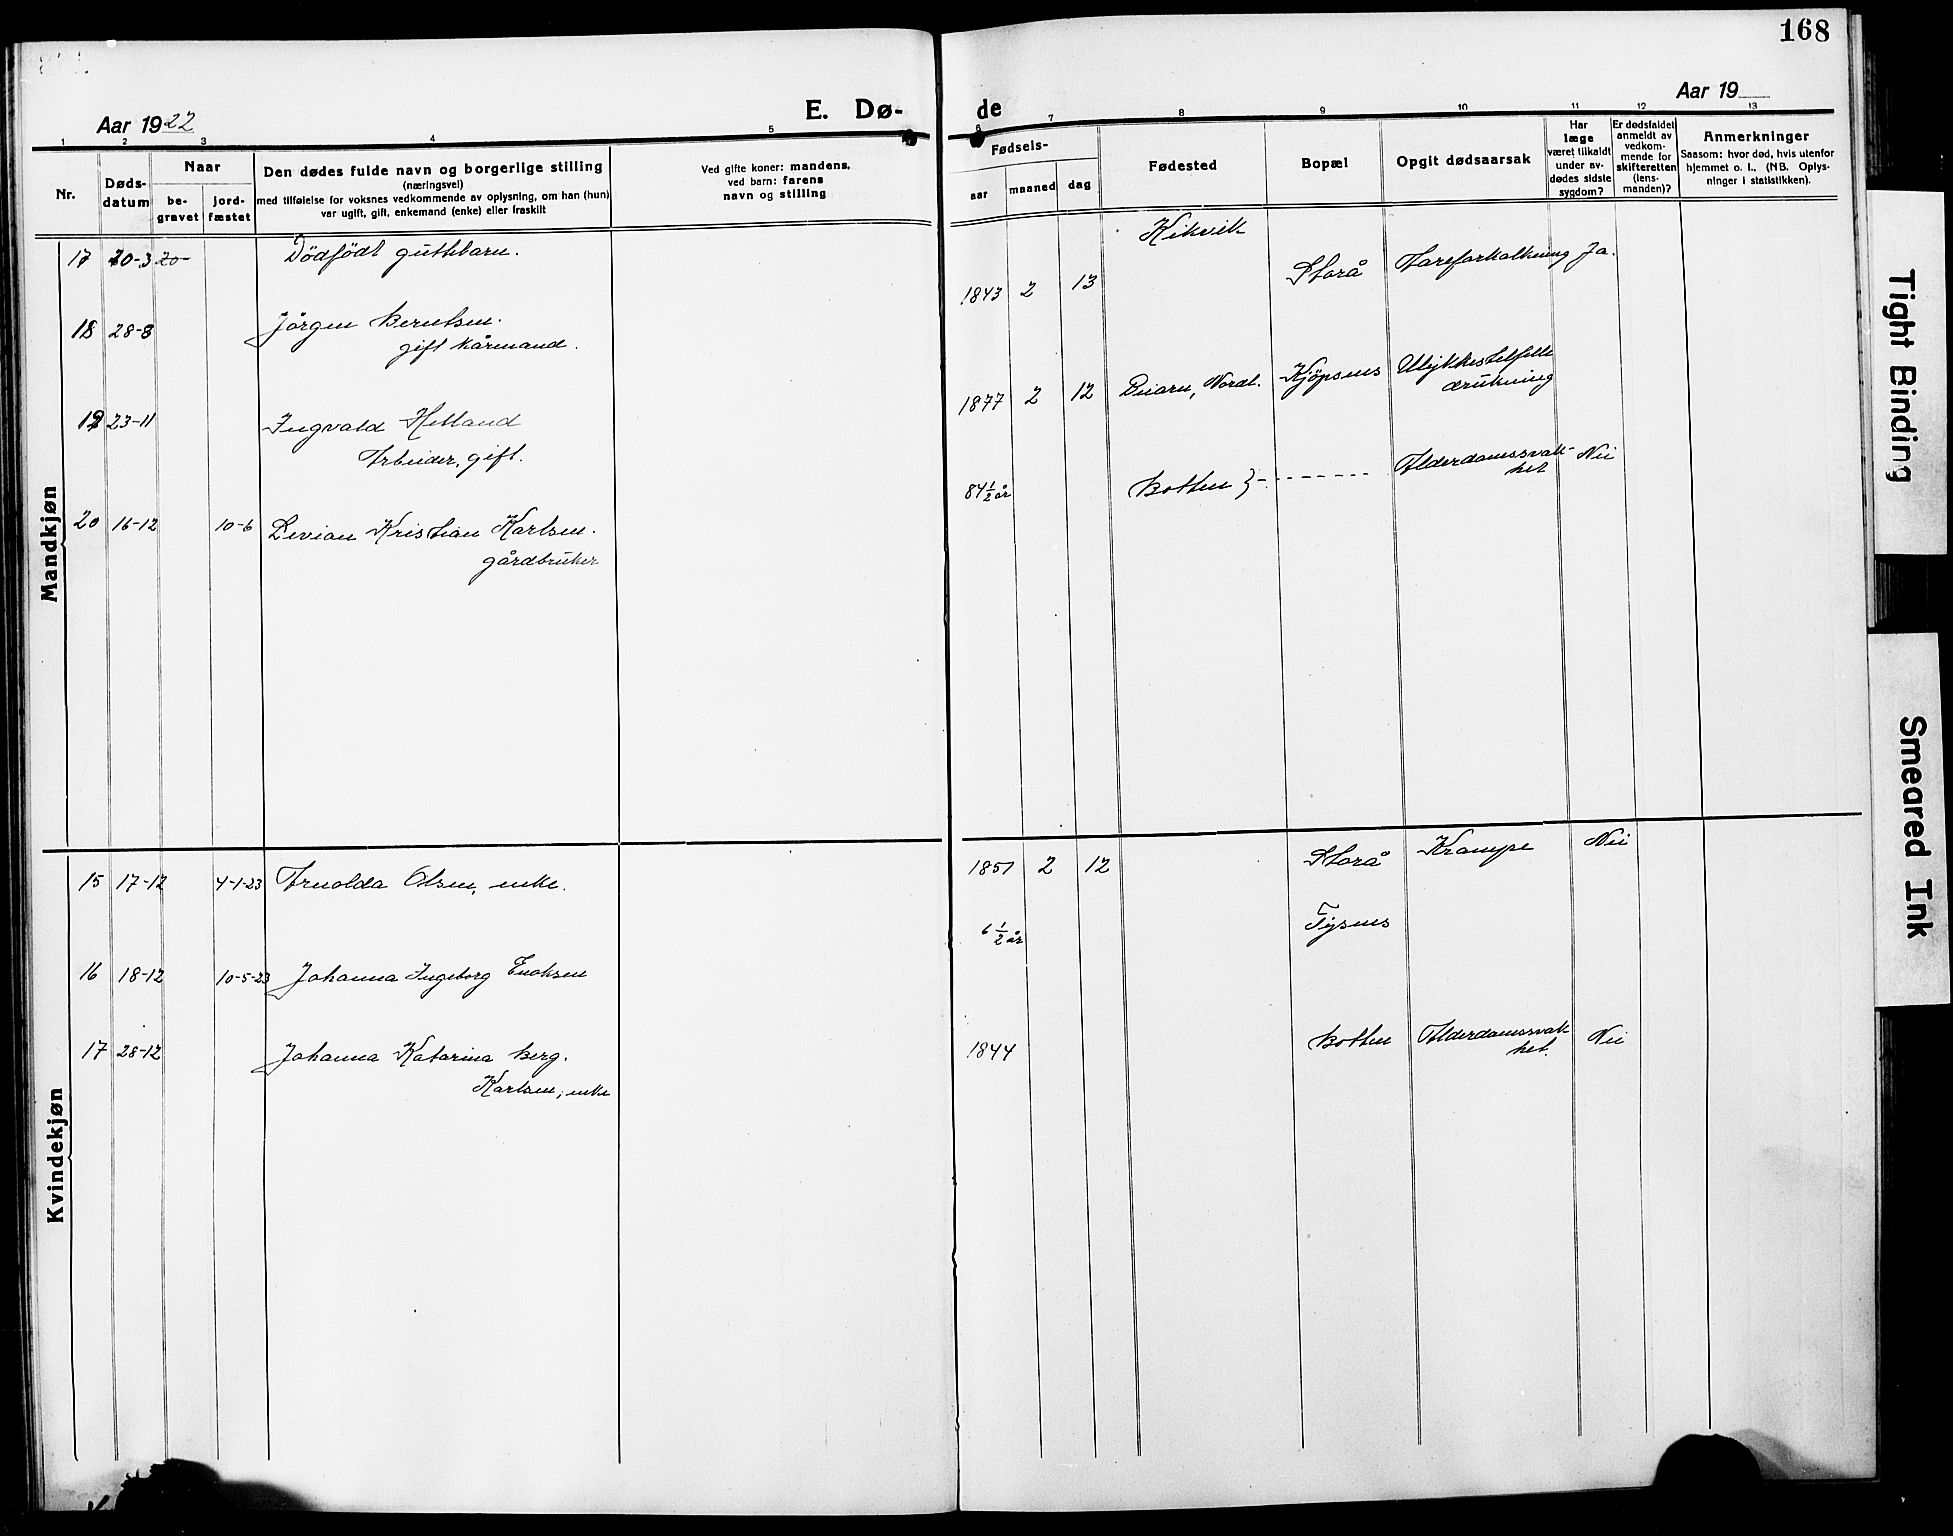 168
Aar 1922
E. Dø-
de
Aar 19
1 2 3 4 5
6 7 8 9 10 11 12 13
Nr.
Døds-
datum
Naar
be-
gravet
jord-
fæstet
Den dødes fulde navn og borgerlige stilling
(næringsvei)
med tilføielse for voksnes vedkommende av oplysning, om han (hun)
var ugift, gift, enkemand (enke) eller fraskilt
Ved gifte koner: mandens,
ved barn: farens
navn og stilling
Fødsels-
aar
maaned
dag
Fødested
Bopæl
Opgit dødsaarsak
Har
læge
været tilkaldt
under av-
dødes sidste
sygdom?
Er dødsfaldet
anmeldt av
vedkom-
mende for
skifteretten
(lens-
manden)?
Anmerkninger
Saasom: hvor død, hvis utenfor
hjemmet o. l., (NB. Oplys-
ninger i statistikken).
Mandkjøn
17 20-3 20- Dödfödt guttebarn.
Kikvik
18 28-8 Jörgen Berntsen.
gift kårmand.
1843 2 13 Storå Åreforkalkning Ja.
19 23-11 Ingvald Helland
Arbeider, gift.
1877 2 12 Beiarn, Nordl. Kjöpsnes Ulykkestilfelle
drukning
20 16-12 10-6 Levian Kristian Karlsen.
gårdbruker
84 1/2 år Botten } - - - - - - Alderdomssvak-
het Nei
Kvindekjøn
15 17-12 4-1-23 Arnolda Olsen, enke.
1851 2 12 Storå Krampe Nei
16 18-12 10-5-23 Johanna Ingeborg Enoksen
6 1/2 år Tysnes
17 28-12 Johanna Katarina Berg.
Karlsen, enke
1844 Botten Alderdomssvak
het. Nei
Tight Binding
Smeared Ink